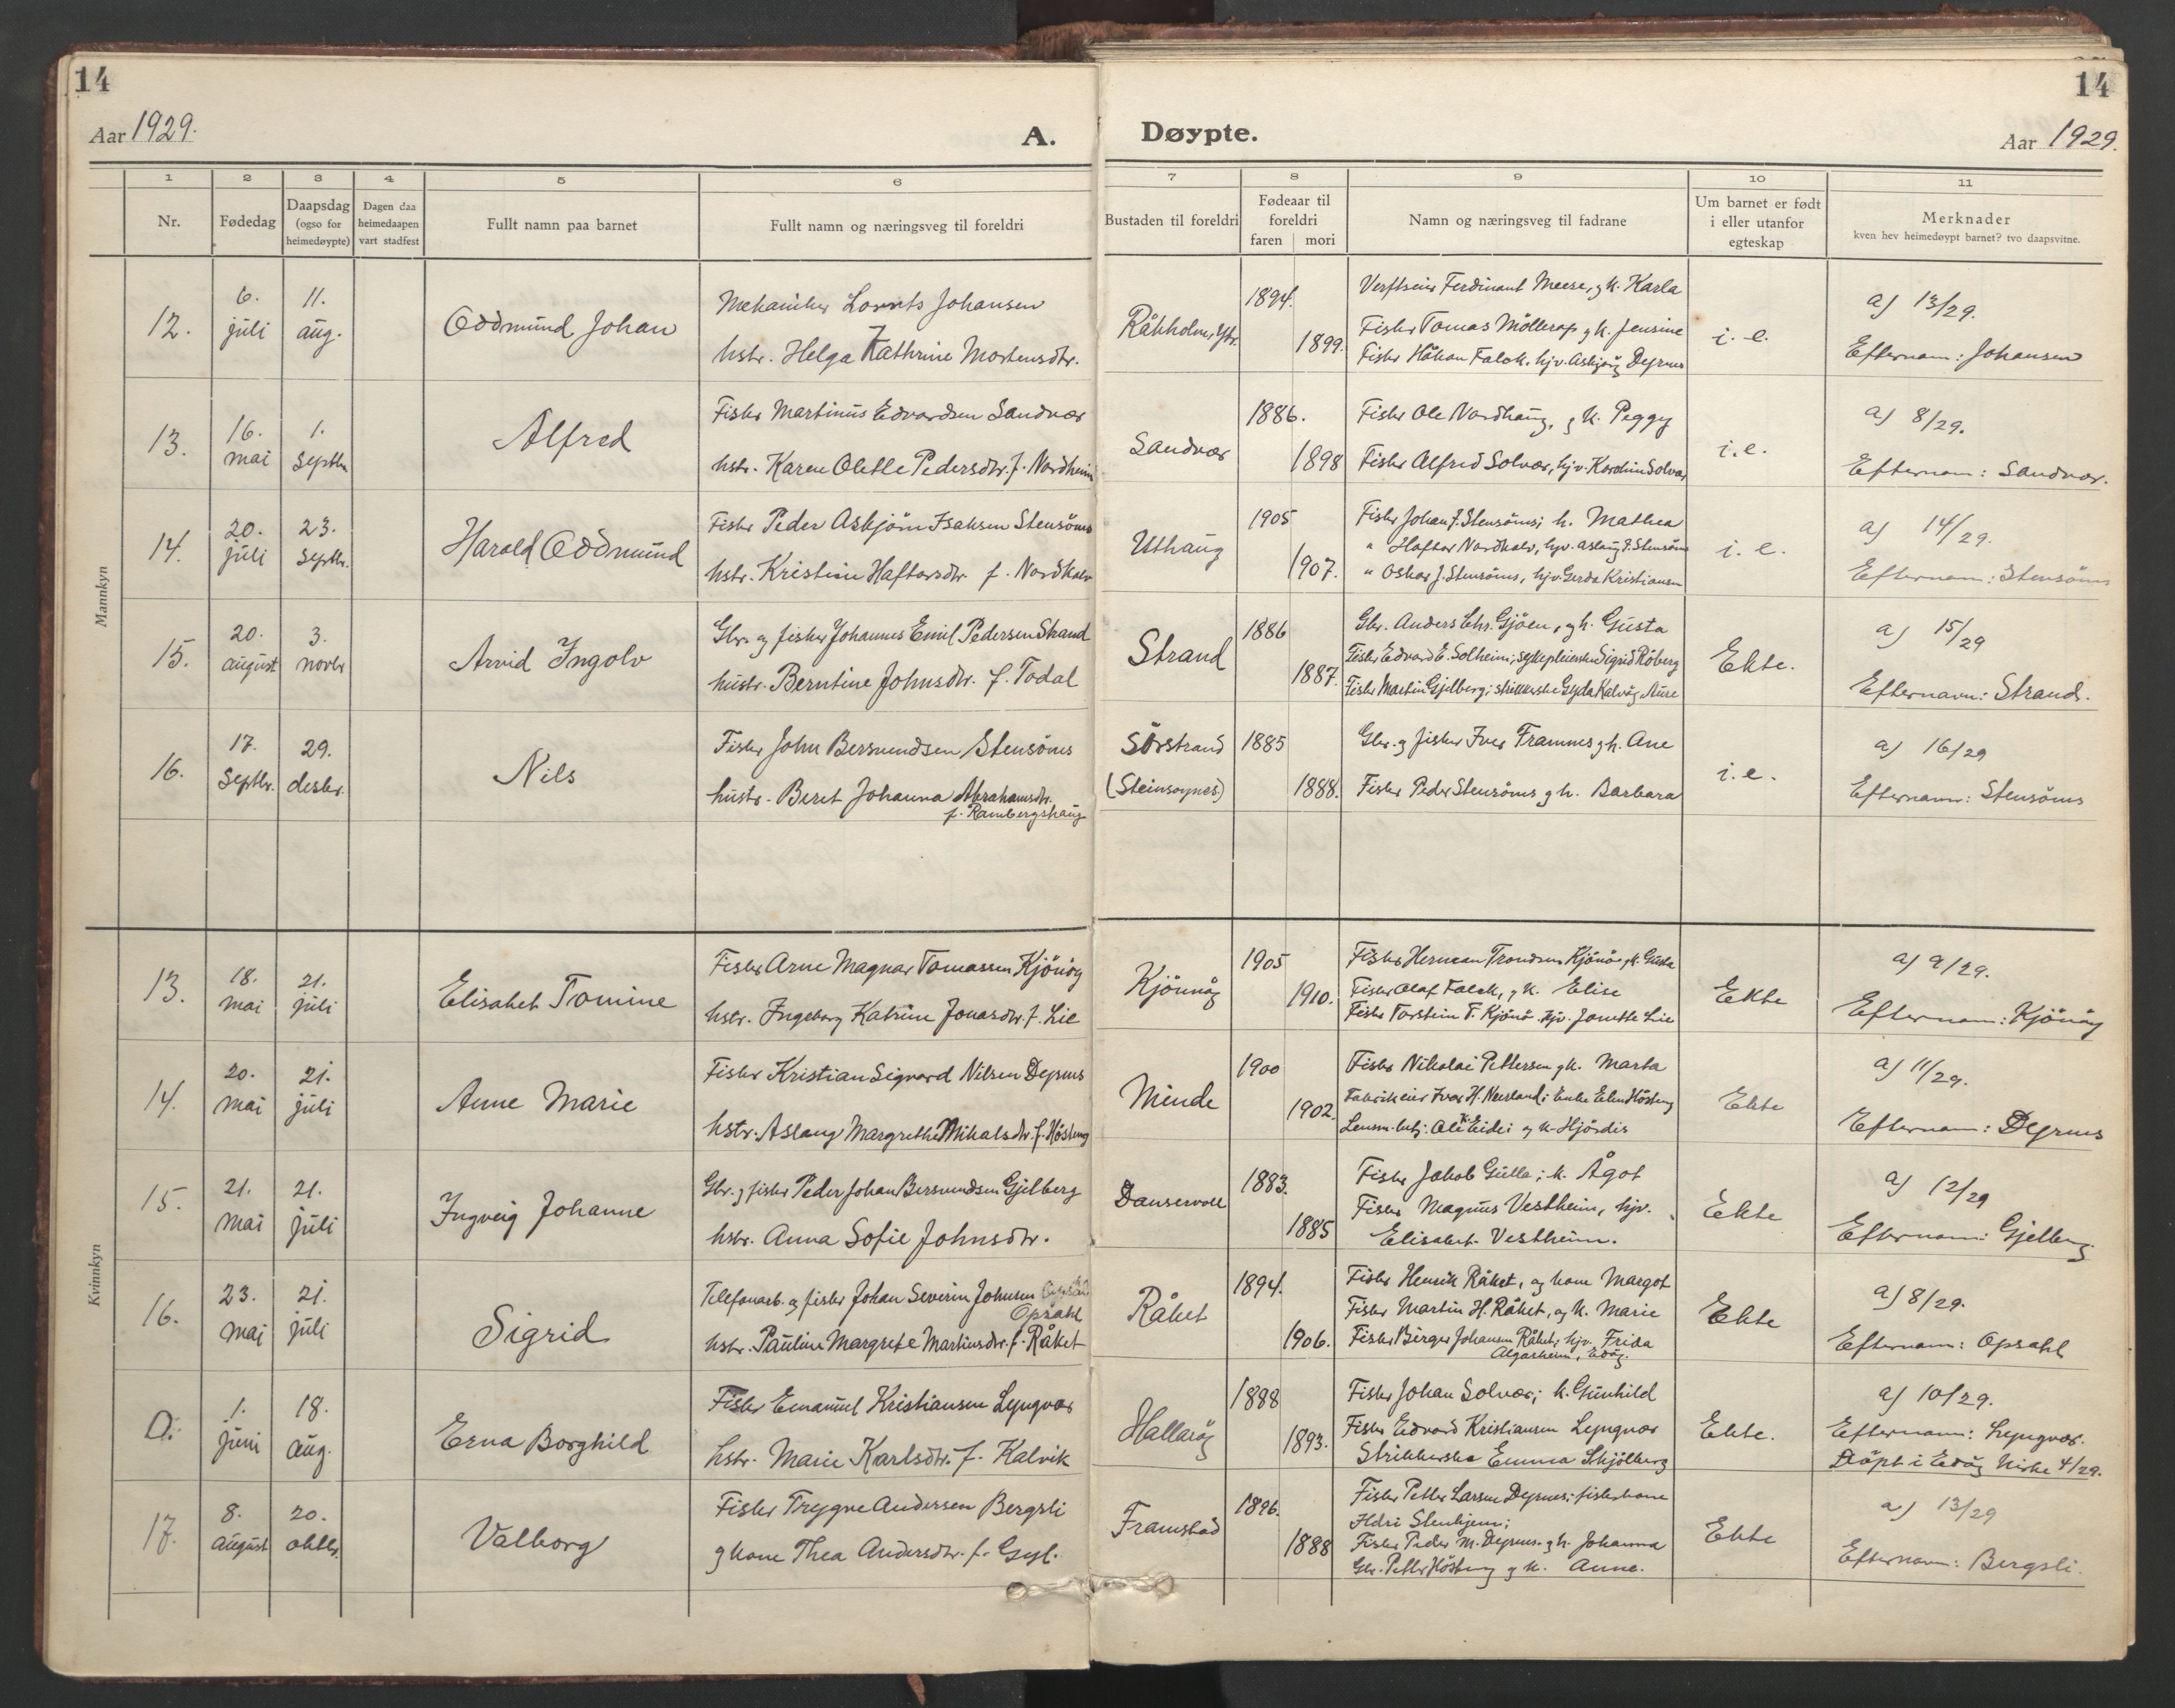 14
Aar 1929.
A.
1 2 3 4 5 6
Nr. Fødedag Daapsdag (ogso for heimedøypte) Dagen daa heimedaapen vart stadfest Fullt namn paa barnet Fullt namn og næringsveg til foreldri
Mannkyn
12. 6. juli 11. aug. Oddmund Johan
Mekaniker Lorents Johansen
hstr. Helga Kathrine Mortensdtr.
13. 16. mai 1. septbr Alfred
Fisker Martinus Edvardsen Sandvær
hstr. Karen Oletle Pedersdtr. f. Nordheim
14. 20. juli 23. septbr. Harald Oddmund
Fisker Peder Asbjörn Isaksen Stensönes
hstr. Kristine Haftorsdtr. f. Nordkalv
15. 20. august 3. novbr Arvid Ingolv
Gbr. og fisker Johannes Emil Pedersen Strand
hustr. Berntine Johnsdtr. f. Todal
16. 17. septbr. 29. desbr. Nils
Fisker John Bersvendsen Stensönes
hustr. Beret Johanna Abrahamsdtr.
f. Rambergshaug
Kvinnkyn
13. 18. mai 21. juli Elisabet Tomine
Fisker Arne Magnar Tomassen Kjönöy
hstr. Ingeborg Katrine Jonasdtr. f. Lie
14. 20. mai 21. juli Anne Marie
Fisker Kristian Sigvard Nilsen Dyrnes
hstr. Aslaug Margrethe Mikalsdtr. f. Hösteng
15. 21. mai 21. juli Ingveig Johanne
Gbr. og fisker Peder Johan Bersvendsen Gjelberg
hstr. Anna Sofie Johnsdtr.
16. 23. mai 21. juli Sigrid
Telefonarb. og fisker Johan Severin Johnsen
Opsahl
hstr. Pauline Margrete Martinsdtr. f. Råket
D: 1. juni 18. aug. Erna Borghild
Fisker Emanuel Kristiansen Lyngvær
hstr. Marie Karlsdtr. f. Kalvik
17. 8. august 20. oktbr. Valborg
Fisker Trygve Andersen Bergsli
og kone Thea Andersdtr. f. Gyl.
14
Døypte.
Aar 1929.
7 8 9 10 11
Bustaden til foreldri Fødeaar til foreldri faren mori Namn og næringsveg til fadrane Um barnet er født i eller utanfor egteskap Merknader kven hev heimedøypt barnet? tvo daapsvitne.
Råkholm, 1894. 1899.
Verftseier Ferdinant Meese, og k. Karla
Fisker Tomas Möllerop og k. Jensine
Fisker Håkon Falck, hjv. Asbjörg Dyrnes
i. e.
a) 13/29.
Efternam: Johansen
Sandvær 1886. 1898
Fisker Ole Nordhaug, og k. Peggy
Fisker Alfred Solvær, hjv. Karoline Solvær
i. e.
a) 8/29.
Efternam: Sandvær.
Uthaug 1905 1907.
Fisker Johan J. Stensönes; h. Mathea
" Haftor Nordkalv, hjv. Aslaug P. Stensönes
" Oskar J. Stensönes, hjv. Gerda Kristiansen
i. e.
a) 14/29.
Efternam: Stensönes
Strand 1886 1887.
Gbr. Anders Chr. Gjöen, og h. Gusta
Fisker Edvard E. Solheim; sykepleierske Sigrid Röberg
Fisker Martin Gjelberg; strikkerske Gyda Kalvåg, Aure
Ekte.
a) 15/29
Efternavn: Strand.
Sörstrand (Steinsøynes) 1885 1888.
Gbr. og fisker Iver Framnes og h. Ane
Fisker Peder Stensönes og h. Barbara
i. e.
a) 16/29
Efternavn: Stensönes
Kjönnöy 1905 1910.
Fisker Herman Trondsen Kjönöy, k. Gusta
Fisker Olaf Falck, og k. Elise
Fisker Torstein T. Kjönö. hjv. Jonette Lie
Ekte
a) 9/29.
Efternam: Kjönöy
Minde 1900 1902.
Fisker Nikolai Pettersen og k. Marta
Fabrikeier Ivar H. Neerland; Enke Elen Hösteng
Lensm. betj. Ole K. Eide; og k. Hjördis
Ekte
a) 11/29.
Efternam: Dyrnes
Danservoll 1883. 1885
Fisker Jakob Gulla; k. Ågot
Fisker Magnus Vestheim, hjv.
Elisabet Vestheim.
Ekte
a) 12/29
Efternam: Gjelberg
Råket 1894. 1906.
Fisker Henrik Råket, og kone Margot
Fisker Martin H. Råket, og k. Marie
Fisker Birger Johansen Råket; hjv. Frida
Algarheim, Edöy.
Ekte
a) 8/29.
Efternam: Opsahl
Hallaröy 1888 1893.
Fisker Johan Solvær; k. Gunhild
Fisker Edvard Kristiansen Lyngvær
Strikkerske Emma Skjölberg
Ekte.
a) 10/29.
Efternam: Lyngvær.
Döpt i Edöy kirke 4/29.
Framstad 1896. 1888
Fisker Petter Larsen Dyrnes; fiskerkone
Ildri Stenhjem;
Fisker Peder M. Dyrnes og h. Johanna
Gbr. Petter Hösteng og k. Anne.
Ekte
a) 13/29
Efternavn: Bergsli.